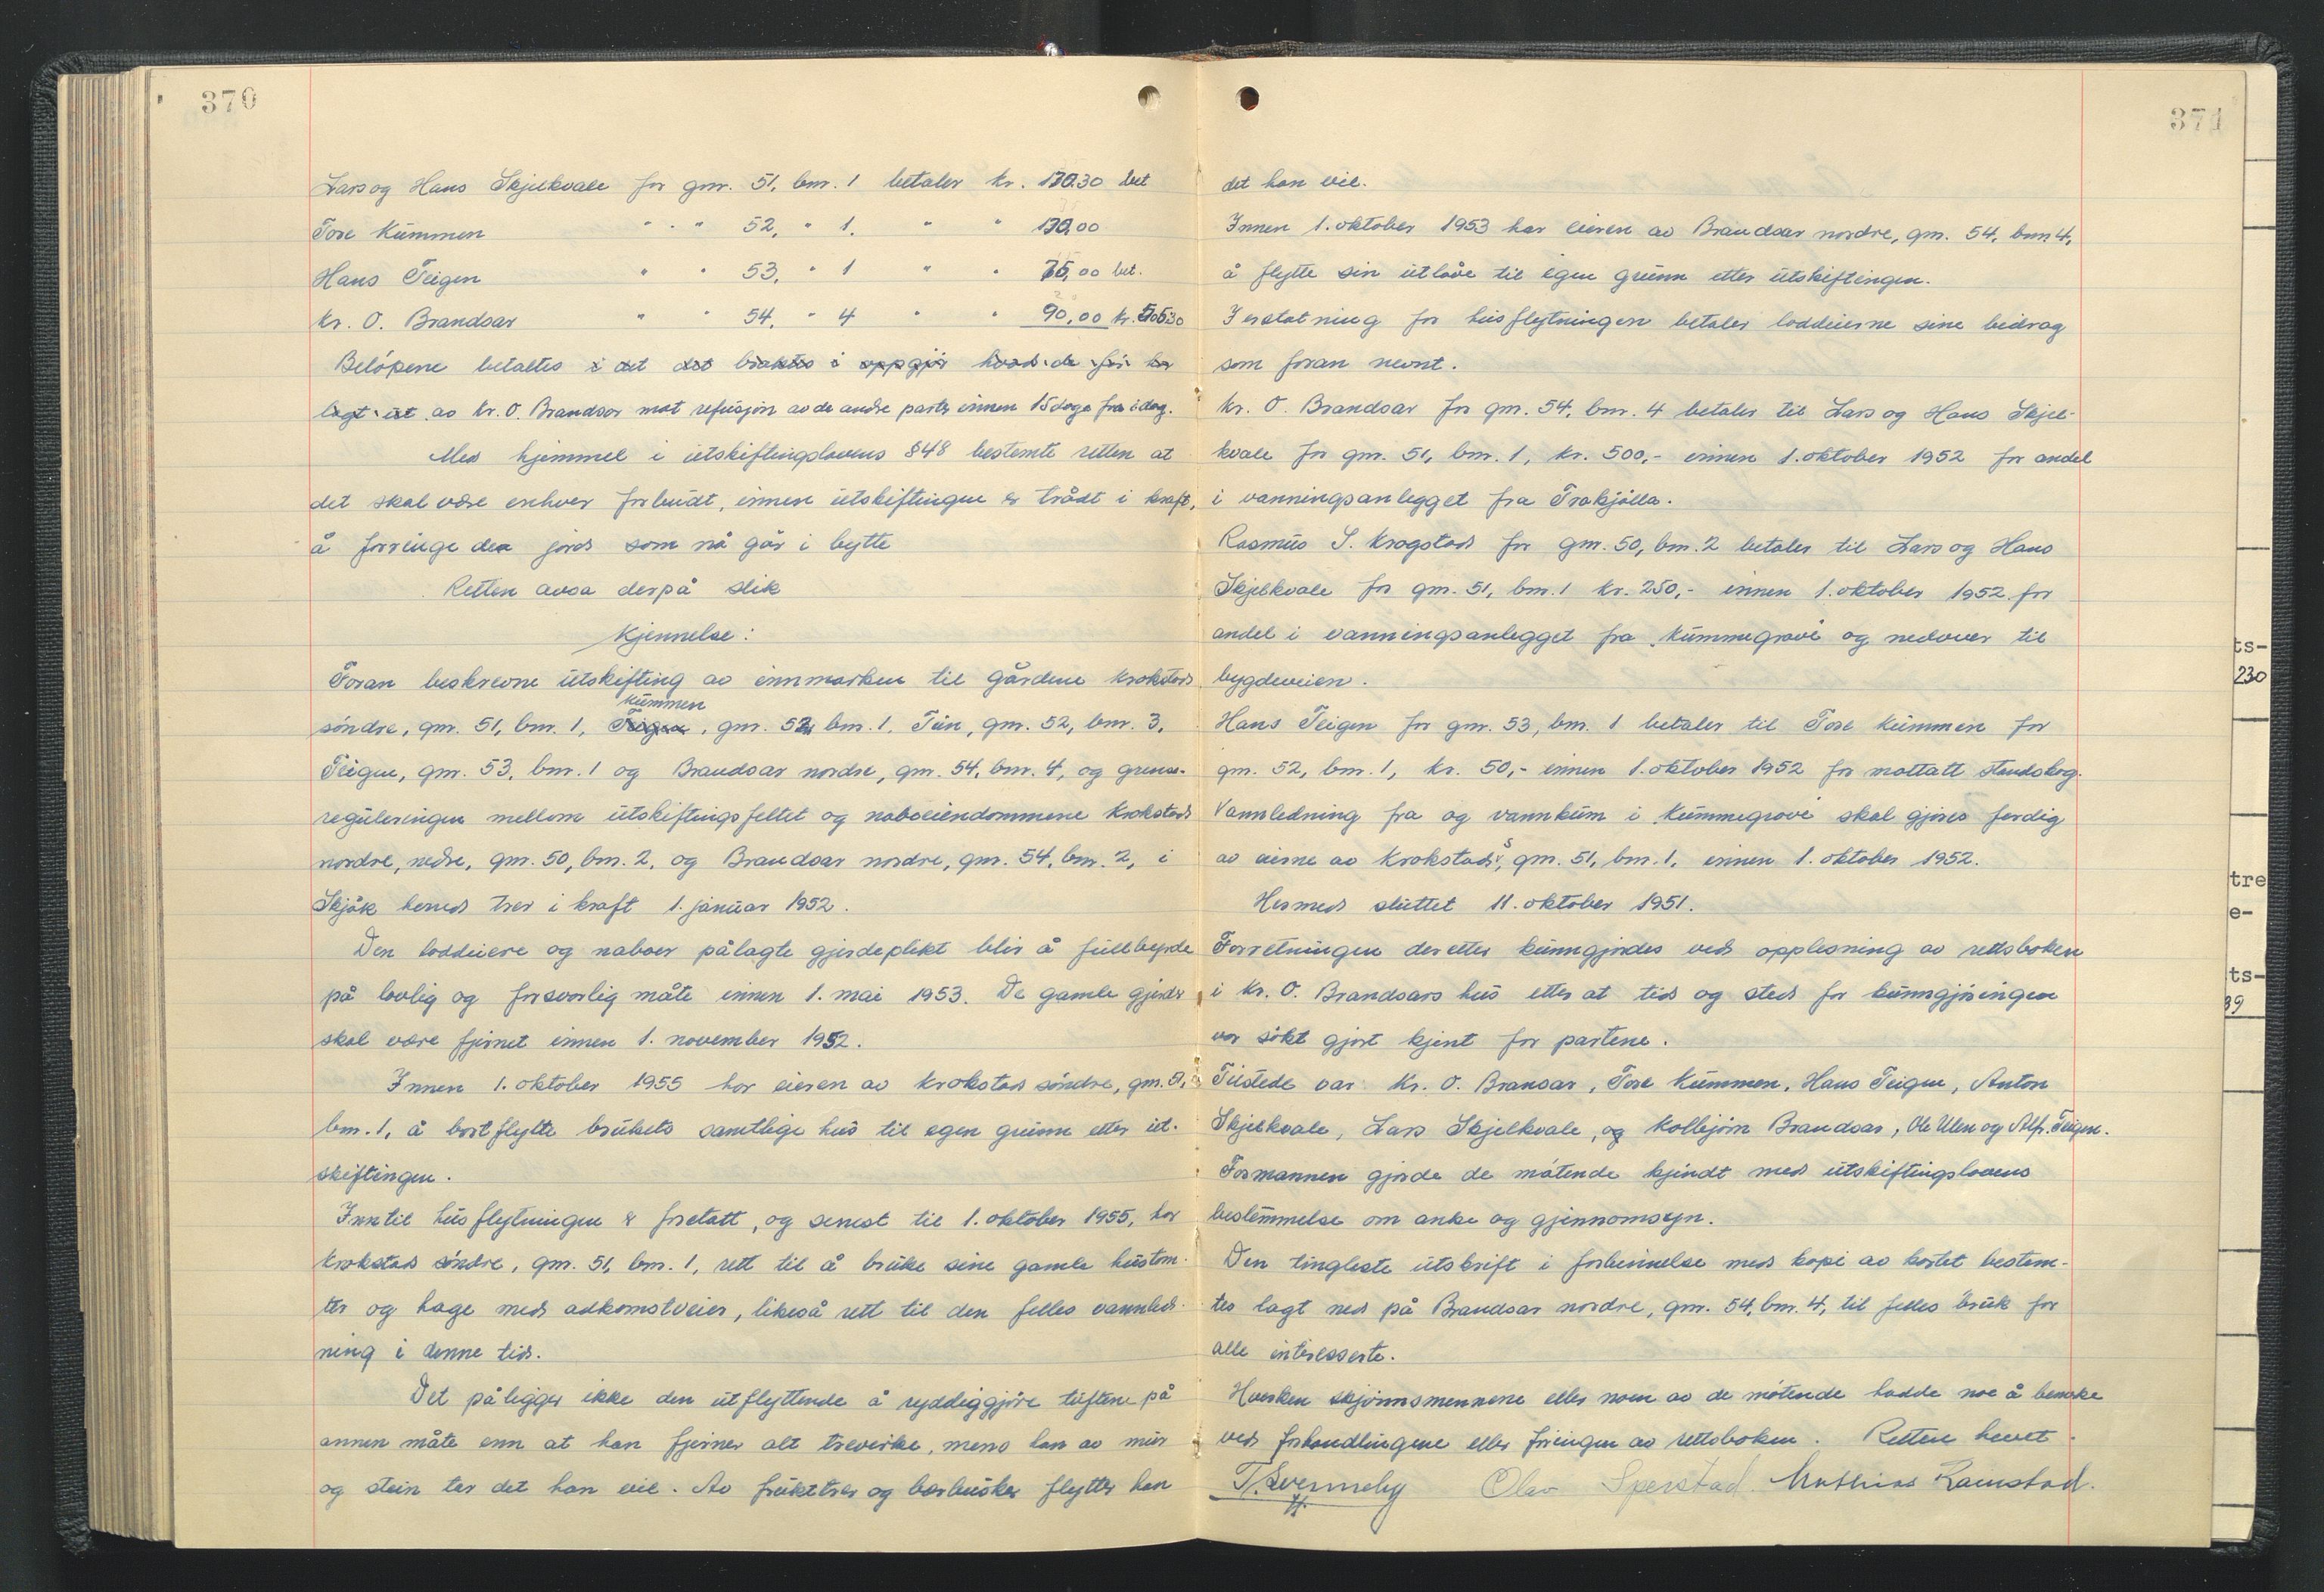 370
Lars og Hans Skjelkvale for gnr. 51, bnr. 1 betaler kr. 170.30 bet
Tore Kummen " " 52, " 1. " " 130,00
Hans Teigen " " 53, " 1 " " 75,00 bet.
Kr. O. Brandsar " " 54, " 4 " " 90,00 kr. 505.30
Beløpene betaltes i det det braktes i oppgjør hvad de før har
lagt ut av Kr. O. Brandsar mot refusjon av de andre parter innen 15 dage fra idag.
Med hjemmel i utskiftingslovens §48 bestemte retten at
det skal være enhver forbudt, innen utskiftingen er trådt i kraft,
å forringe den jord som nå går i bytte
Retten avsa derpå slik
Kjennelse:
Foran beskrevne utskifting av innmarken til gårdene Krokstad
Kummen
søndre, gnr. 51, bnr. 1, Teigen, gnr. 52, bnr. 1. Tun, gnr. 52, bnr. 3,
Teigen, gnr. 53, bnr. 1 og Brandsar nordre, gnr. 54, bnr. 4, og grense-
reguleringen mellom utskiftingsfeltet og naboeiendommene Krokstad
nordre, nedre, gnr. 50, bnr. 2, og Brandsar nordre, gnr. 54, bnr. 2, i
Skjåk herred trer i kraft 1. januar 1952.
Den loddeiere og naboer pålagte gjerdeplikt blir å fullbyrde
på lovlig og forsvarlig måte innen 1. mai 1953. De gamle gjerder
skal være fjernet innen 1. november 1952.
Innen 1. oktober 1955 har eieren av Krokstad søndre, gnr. 51,
bnr. 1, å bortflytte brukets samtlige hus til egen grunn etter ut-
skiftingen.
Inntil husflytningen er foretatt, og senest til 1. oktober 1955, har
Krokstad søndre, gnr. 51, bnr. 1, rett til å bruke sine gamle hustom-
ter og hage med adkomstveier, likeså rett til den felles vannled-
ning i denne tid.
Det pålegges ikke den utflyttende å ryddiggjøre tuftene på
annen måte enn at han fjerner alt trevirke, mens han av mur
og stein tar det han vil. Av frukttrær og bærbusker flytter han
371
det han vil.
Innen 1. oktober 1953 har eieren av Brandsar nordre, gnr. 54, bnr. 4,
å flytte sin utlåve til egen grunn etter utskiftingen.
I erstatning for husflytningen betaler loddeierne sine bidrag
som foran nevnt.
Kr. O. Brandsar for gnr. 54, bnr. 4 betaler til Lars og Hans Skjel-
kvale for gnr. 51, bnr. 1, kr. 500,- innen 1. oktober 1952 for andel
i vanningsanlegget fra Trakjølla.
Rasmus S. Krogstad for gnr. 50, bnr. 2 betaler til Lars og Hans
Skjelkvale for gnr. 51, bnr. 1 kr. 250,- innen 1. oktober 1952 for
andel i vanningsanlegget fra Kummegrove og nedover til
bygdeveien.
Hans Teigen for gnr. 53, bnr. 1 betaler til Tore Kummen for
gnr. 52, bnr. 1, kr. 50,- innen 1. oktober 1952 for mottatt standskog.
Vannledning fra og vannkum i Kummegrove skal gjøres ferdig
av eierne av Krokstad s, gnr. 51, bnr. 1, innen 1. oktober 1952.
Hermed sluttet 11. oktober 1951.
Forretningen deretter kunngjordes ved opplesning av rettsboken
i Kr. O. Brandsars hus etter at tid og sted for kunngjøringen
var søkt gjort kjent for partene.
Tilstede var: Kr. O. Brandsar, Tore Kummen, Hans Teigen, Anton
Skjelkvale, Lars Skjelkvale, og Kolbjørn Brandsar, Ole Ulen og Alf. Teigen.
Formannen gjorde de møtende kjendt med utskiftingslovens
bestemmelse om anke og gjennomsyn.
Den tingleste utskrift i forbinnelse med kopi av kartet bestem-
tes lagt ned på Brandsar nordre, gnr. 54, bnr. 4, til felles bruk for
alle interesserte.
Hverken skjønnsmennene eller noen av de møtende hadde noe å bemerke
ved forhandlingene eller føringen av rettsboken. Retten hevet.
T. Svenneby Olav Sperstad. Mathias Ramstad.
ts-
230
tre
e-
ts-
39